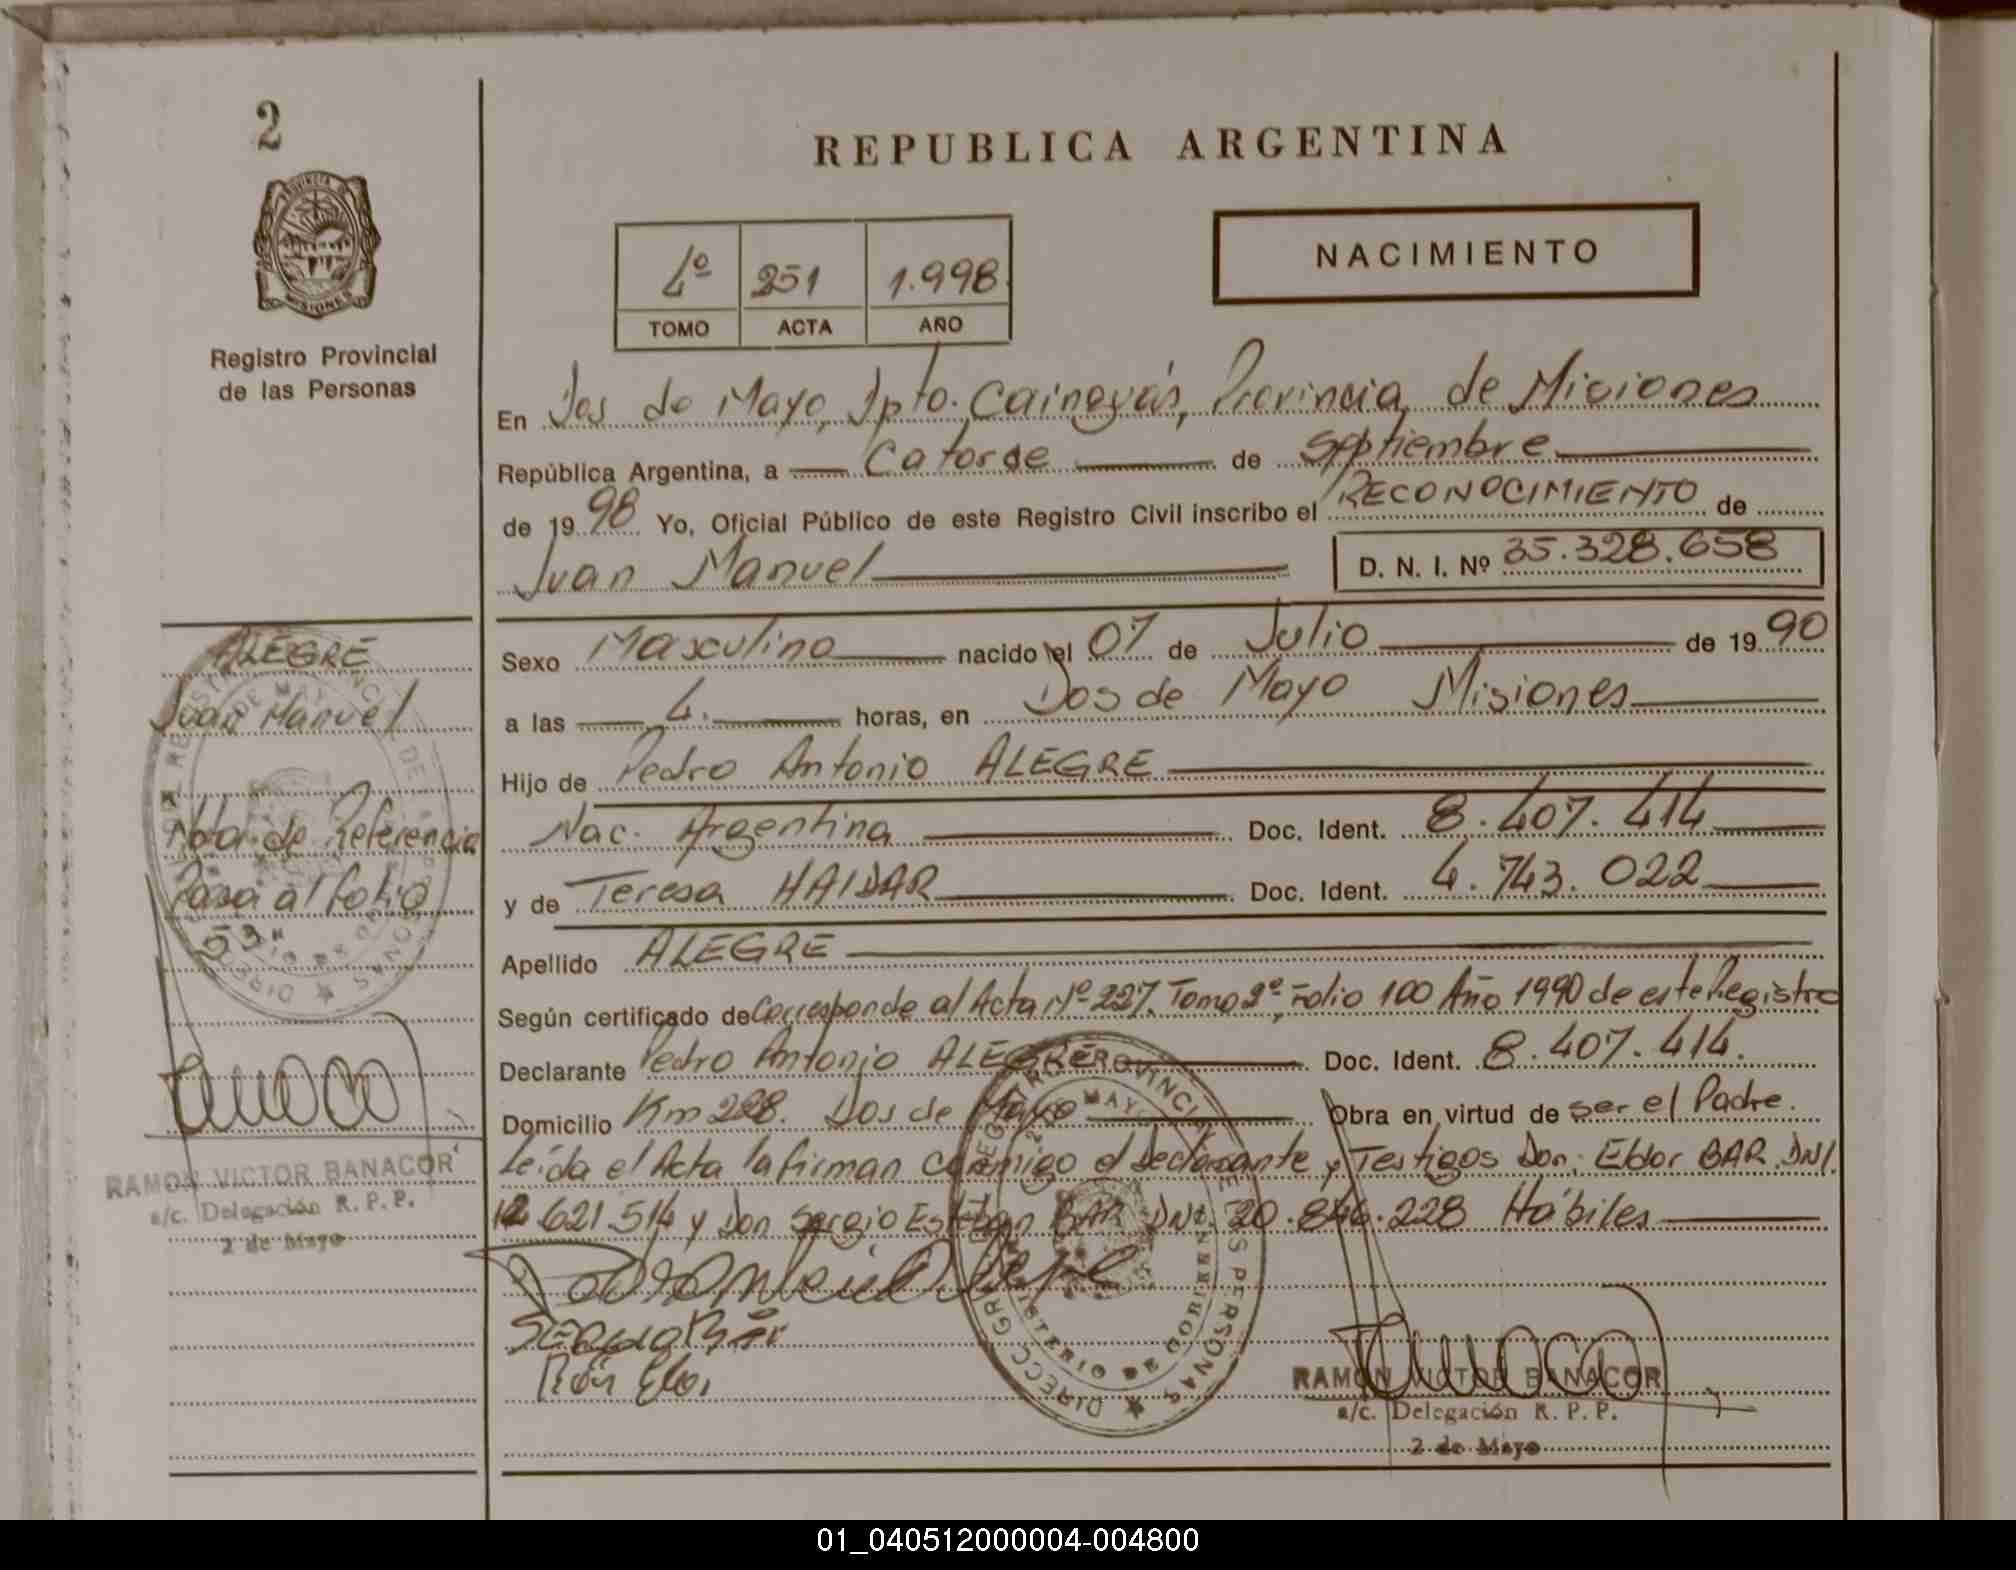 2
REPUBLICA ARGENTINA
PROVINCIA DE
MISIONES
Registro Provincial
de las Personas
4º 251 1.998
TOMO ACTA AÑO
NACIMIENTO
En Dos de Mayo, Dpto. Cainguás, Provincia de Misiones
República Argentina, a Catorce de Septiembre
de 1998 Yo, Oficial Público de este Registro Civil inscribo el RECONOCIMIENTO de
Juan Manuel D. N. I. Nº 35.328.658
Sexo Masculino nacido el 07 de Julio de 1990
a las 4. horas, en Dos de Mayo Misiones
Hijo de Pedro Antonio ALEGRE
Nac. Argentina Doc. Ident. 8.407.414
y de Teresa HAIDAR Doc. Ident. 4.743.022
Apellido ALEGRE
Según certificado de Corresponde al Acta Nº 227. Tomo 2º, Folio 100 Año 1990 de este Registro
Declarante Pedro Antonio ALEGRE Doc. Ident. 8.407.414.
Domicilio Km 228. Dos de Mayo Obra en virtud de ser el Padre.
Leída el Acta la firman conmigo el Declarante y Testigos Don: Eldor BAR DNI.
621.514 y Don Sergio Esteban BAR DNI. 20.846.228 Hábiles
ALEGRE
Juan Manuel
Nota de Referencia
Pasa al folio
53"
RAMON VICTOR BANACOR
a/c. Delegación R. P. P.
2 de Mayo
RAMON VICTOR BANACOR
a/c. Delegación R. P. P.
2 de Mayo
01_040512000004-004800